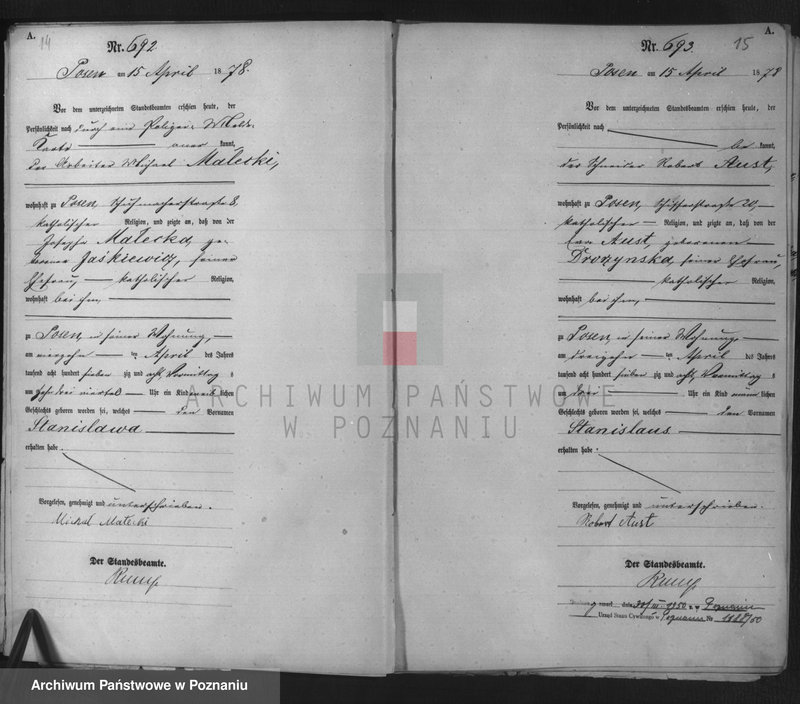 A.
14
Nr. 692
Posen am 15 April 1878.
Vor dem unterzeichneten Standesbeamten erschien heute, der
Persönlichkeit nach durch eine Polizei-Melde-
Karte anerkannt,
der Arbeiter Michael Małecki,
wohnhaft zu Posen, Schuhmacherstraße 8,
katholischer Religion, und zeigte an, daß von der
Josepha Małecka, ge-
borene Jaśkiewicz, seiner
Ehefrau, katholischer Religion,
wohnhaft bei ihm,
zu Posen, in seiner Wohnung,
am vierzehnten April des Jahres
tausend acht hundert siebenzig und acht, Vormittags
um zehn drei viertel Uhr ein Kind weiblichen
Geschlechts geboren worden sei, welches den Vornamen
Stanislawa
erhalten habe.
Vorgelesen, genehmigt und unterschrieben.
Michał Małecki
Der Standesbeamte.
A.
15
Nr. 693
Posen am 15 April 1878
Vor dem unterzeichneten Standesbeamten erschien heute, der
Persönlichkeit nach
bekannt,
der Schneider Robert Aust,
wohnhaft zu Posen, Schifferstraße 20,
katholischer Religion, und zeigte an, daß von der
Aust, geborenen
Drozynska, seiner Ehefrau,
katholischer Religion,
wohnhaft bei ihm,
zu Posen, in seiner Wohnung,
am dreizehnten April des Jahres
tausend acht hundert siebenzig und acht, Vormittags
um drei Uhr ein Kind männlichen
Geschlechts geboren worden sei, welches den Vornamen
Stanislaus
erhalten habe.
Vorgelesen, genehmigt und unterschrieben.
Robert Aust
Der Standesbeamte.
zmarł dnia 1950 r. w Poznaniu
Urząd Stanu Cywilnego w Poznaniu Nr
ARCHIWUM PAŃSTWOWE
W POZNANIU
Archiwum Państwowe w Poznaniu